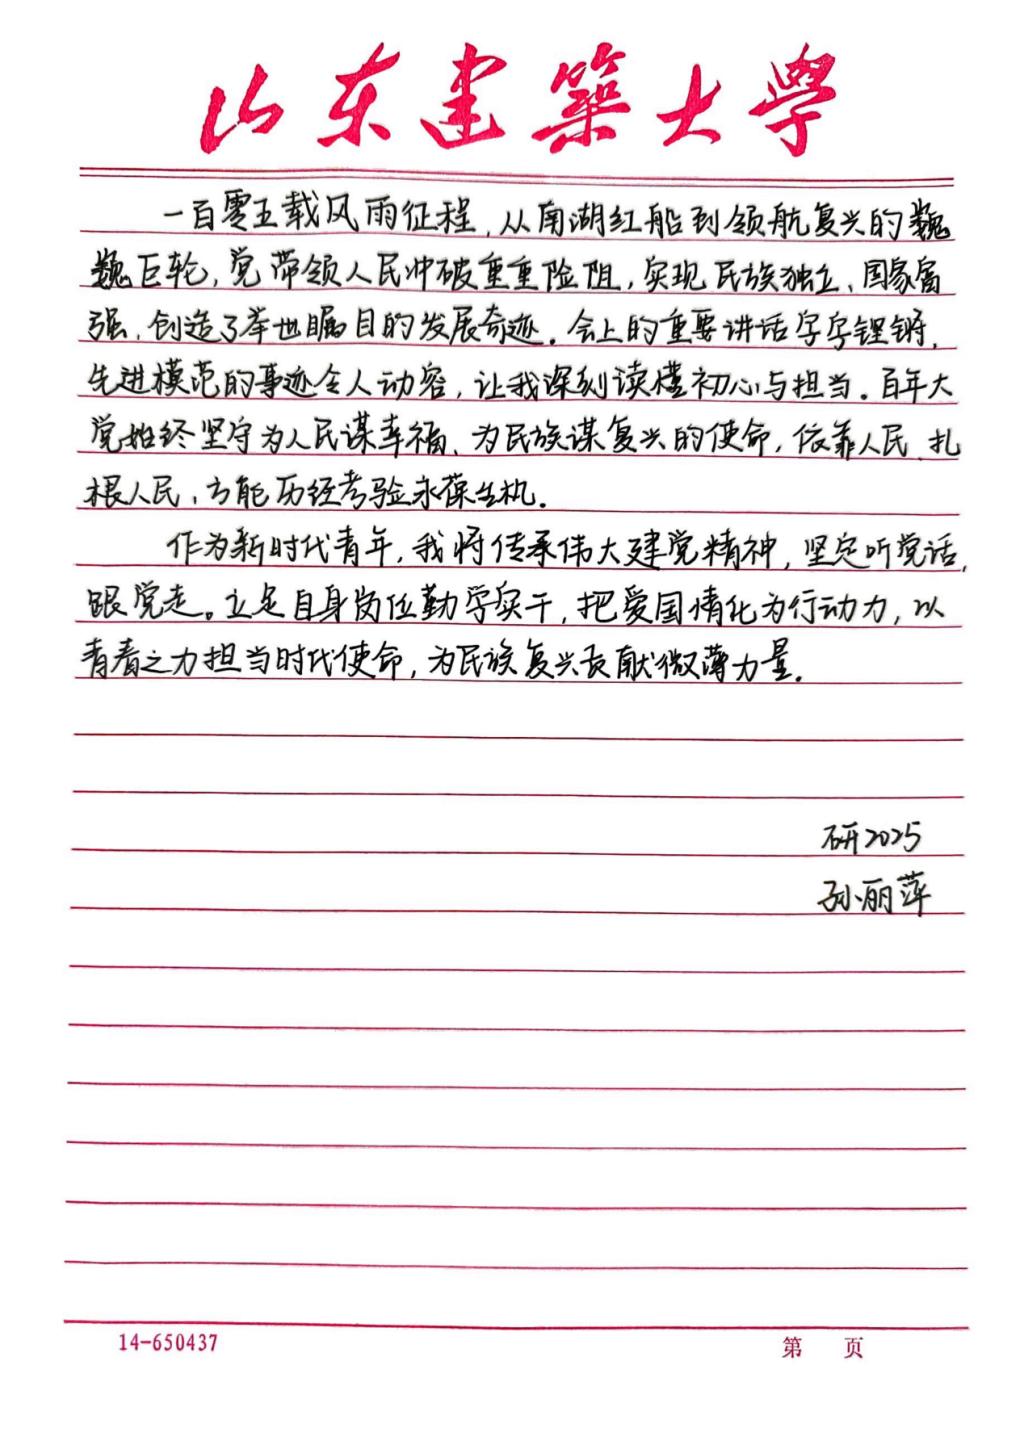 山东建筑大学
一百零五载风雨征程，从南湖红船到领航复兴的巍
巍巨轮，党带领人民冲破重重险阻，实现民族独立、国家富
强，创造了举世瞩目的发展奇迹。会上的重要讲话字字铿锵，
先进模范的事迹令人动容，让我深刻读懂初心与担当。百年大
党始终坚守为人民谋幸福、为民族谋复兴的使命，依靠人民、扎
根人民，方能历经考验永葆生机。
作为新时代青年，我将传承伟大建党精神，坚定听党话，
跟党走。立足自身岗位勤学实干，把爱国情化为行动力，以
青春之力担当时代使命，为民族复兴贡献微薄力量。
研2025
孙丽萍
14-650437
第 页